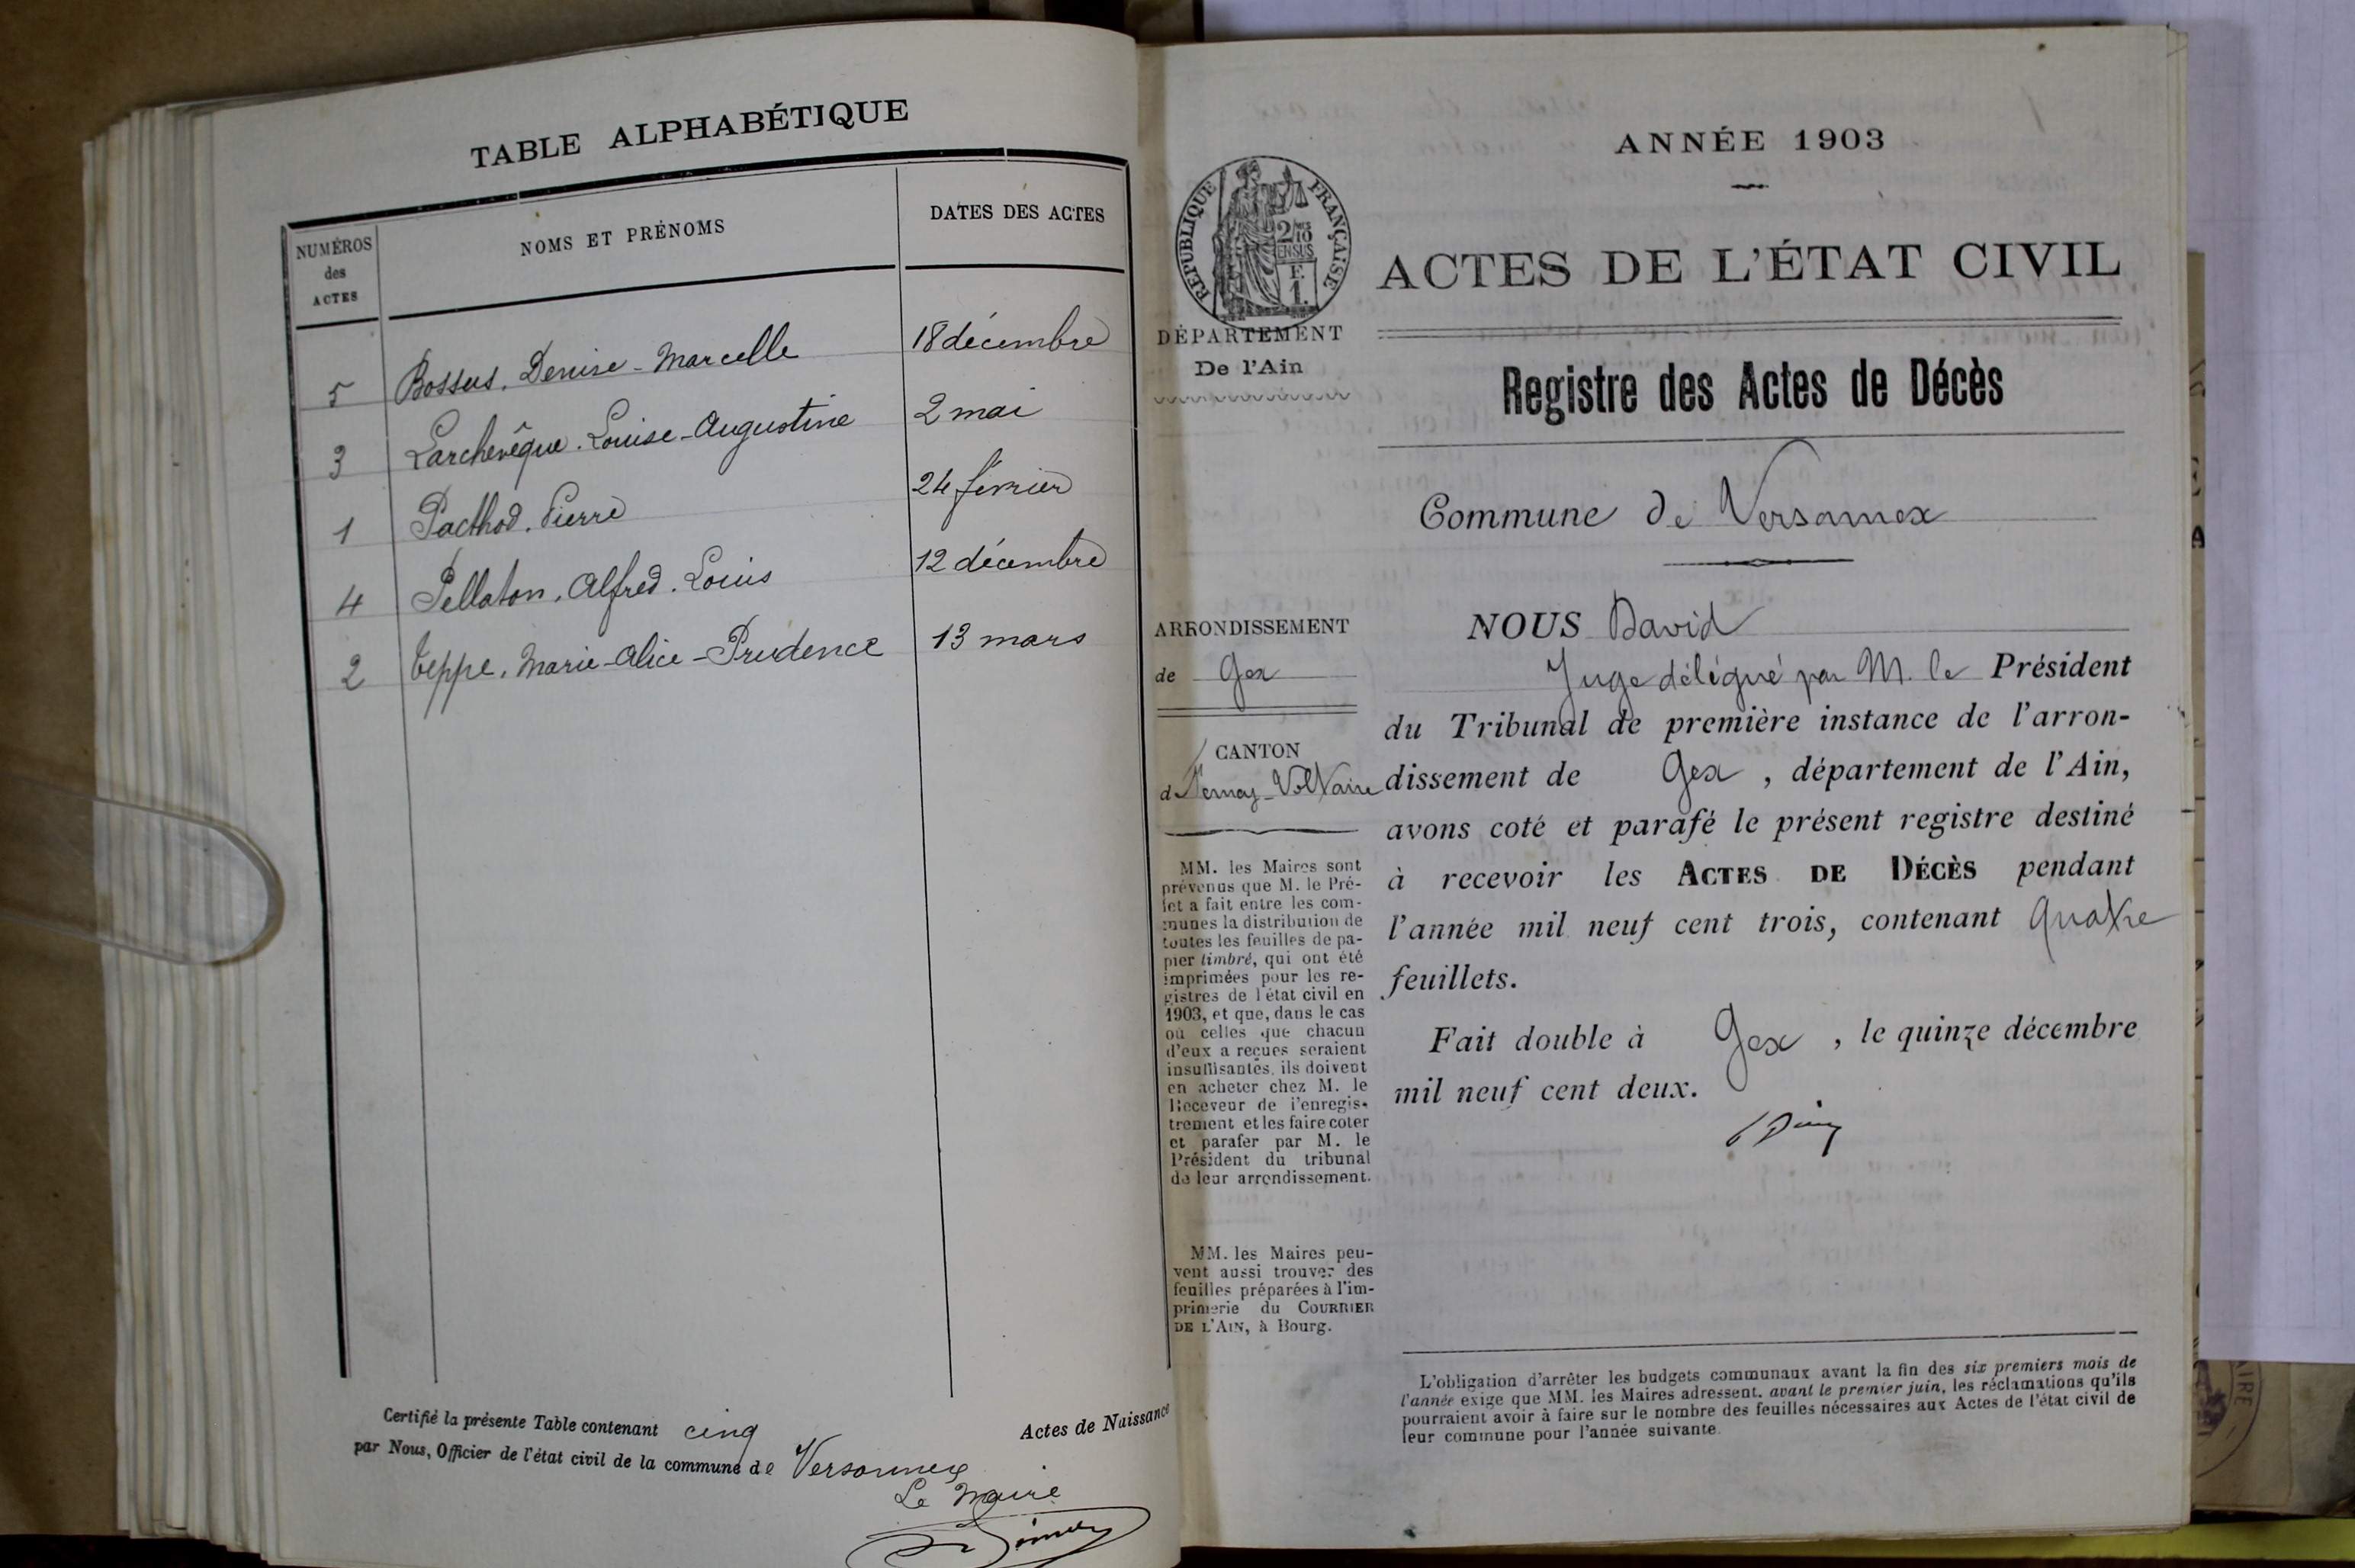 TABLE ALPHABÉTIQUE
NUMÉROS
des
ACTES
NOMS ET PRÉNOMS
DATES DES ACTES
5 Bossus, Denise-Marcelle 18 décembre
3 Larchevêque. Louise-Augustine 2 mai
1 Pacthod. Pierre 24 février
4 Pellaton, Alfred. Louis 12 décembre
2 Teppe, Marie-Alice-Prudence 13 mars
Certifié la présente Table contenant cinq Actes de Naissance
par Nous, Officier de l'état civil de la commune de Versonnex
Le Maire
RÉPUBLIQUE FRANÇAISE
DÉPARTEMENT
De l'Ain
ARRONDISSEMENT
de Gex
CANTON
de Fernay-Voltaire
MM. les Maires sont
prévenus que M. le Pré-
fet a fait entre les com-
munes la distribution de
toutes les feuilles de pa-
pier timbré, qui ont été
imprimées pour les re-
gistres de l'état civil en
1903, et que, dans le cas
où celles que chacun
d'eux a reçues seraient
insuffisantes, ils doivent
en acheter chez M. le
Receveur de l'enregis-
trement et les faire coter
et parafer par M. le
Président du tribunal
de leur arrondissement.
MM. les Maires peu-
vent aussi trouver des
feuilles préparées à l'im-
primerie du COURRIER
DE L'AIN, à Bourg.
ANNÉE 1903
ACTES DE L'ÉTAT CIVIL
Registre des Actes de Décès
Commune de Versonnex
NOUS David
Juge délégué par M. le Président
du Tribunal de première instance de l'arron-
dissement de Gex, département de l'Ain,
avons coté et parafé le présent registre destiné
à recevoir les ACTES DE DÉCÈS pendant
l'année mil neuf cent trois, contenant quatre
feuillets.
Fait double à Gex, le quinze décembre
mil neuf cent deux.
L'obligation d'arrêter les budgets communaux avant la fin des six premiers mois de
l'année exige que MM. les Maires adressent, avant le premier juin, les réclamations qu'ils
pourraient avoir à faire sur le nombre des feuilles nécessaires aux Actes de l'état civil de
leur commune pour l'année suivante.